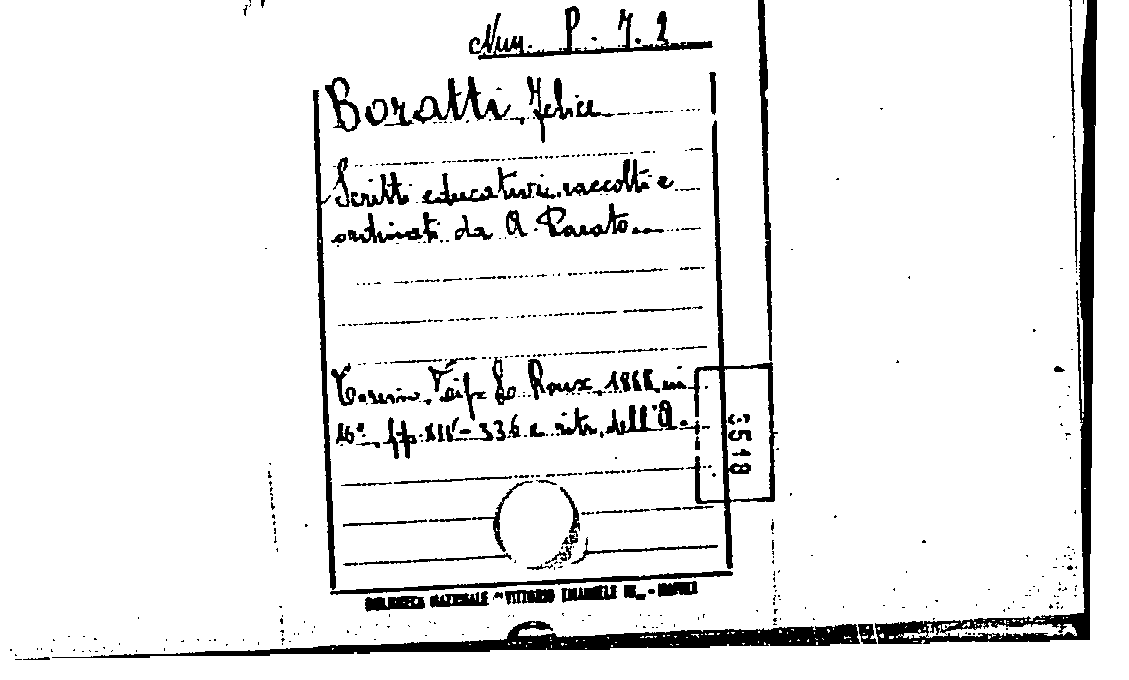 Num. P. 7. 2
Boratti, Felice
Scritti educativi raccolti e
ordinati da A. Parato
Torino, Tip. L. Roux, 1888, in
16°. pp. XIV-336 e ritr. dell'A.
5518
BIBLIOTECA NAZIONALE "VITTORIO EMANUELE III" - NAPOLI